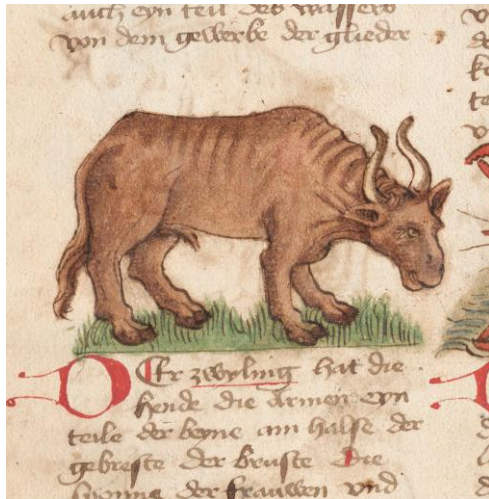 auch eyn teil des wassers
von dem gewerbe der glieder
Der zwyling hat die
hende die armen eyn
teile der beyne am halse der
gebreste der bruste Die
der frauwen vnd